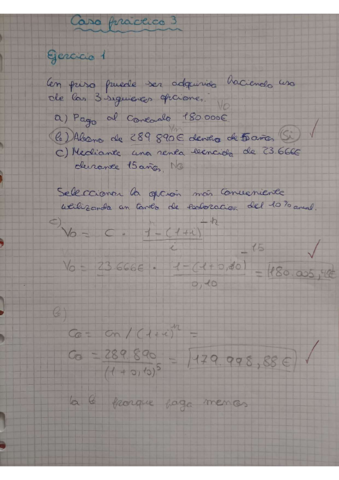 Caso práctico 3
Ejercicio 1
Un piso puede ser adquirido haciendo uso
de las 3 siguientes opciones.
a) Pago al contado 180000€ No
b) Abono de 289 890€ dentro de 5 años. Sí ✓
c) Mediante una renta vencida de 23.666€
durante 15 años No
Seleccionar la opción más conveniente
utilizando un tanto de valoración del 10% anual.
c)
Vo = C · 1-(1+i)^-n / i
Vo = 23.666€ · 1-(1+0,10)^-15 / 0,10 = 180.005, ✓
B)
Co = Cn / (1+i)^n =
Co = 289.890 / (1+0,10)^5 = 179 998,88€ ✓
La b porque pago menos